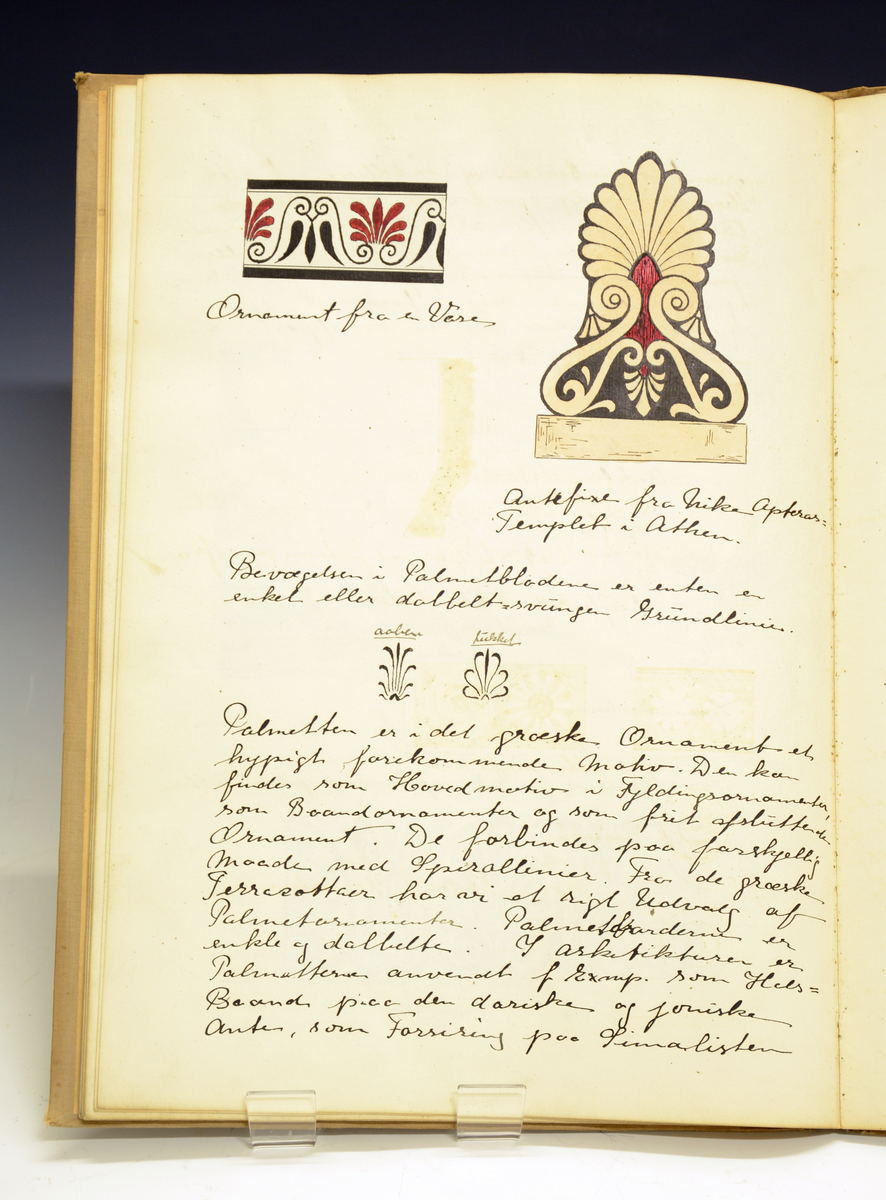 Ornament fra en Vase
Antefixe fra Nike Apteras=
Templet i Athen.
Bevægelsen i Palmetbladene er enten en
enkel eller dobbelt-svungen Grundlinie.
aaben lukket
Palmetten er i det græske Ornament et
hypigt forekommende Motiv. Den kan
findes som Hovedmotiv i Fyldingsornamenter,
som Baandornamenter og som frit afsluttende
Ornament. De forbindes paa forskjellig
Maade med Spirallinier. Fra de græske
Terracottaer har vi et rigt Udvalg af
Palmetornamenter. Palmetborderne er
enkle og dobbelte. I arkitekturen er
Palmetterne anvendt f. Exmp. som Hals=
Baand paa den doriske og joniske
Ante, som Forsiring paa Simalisten